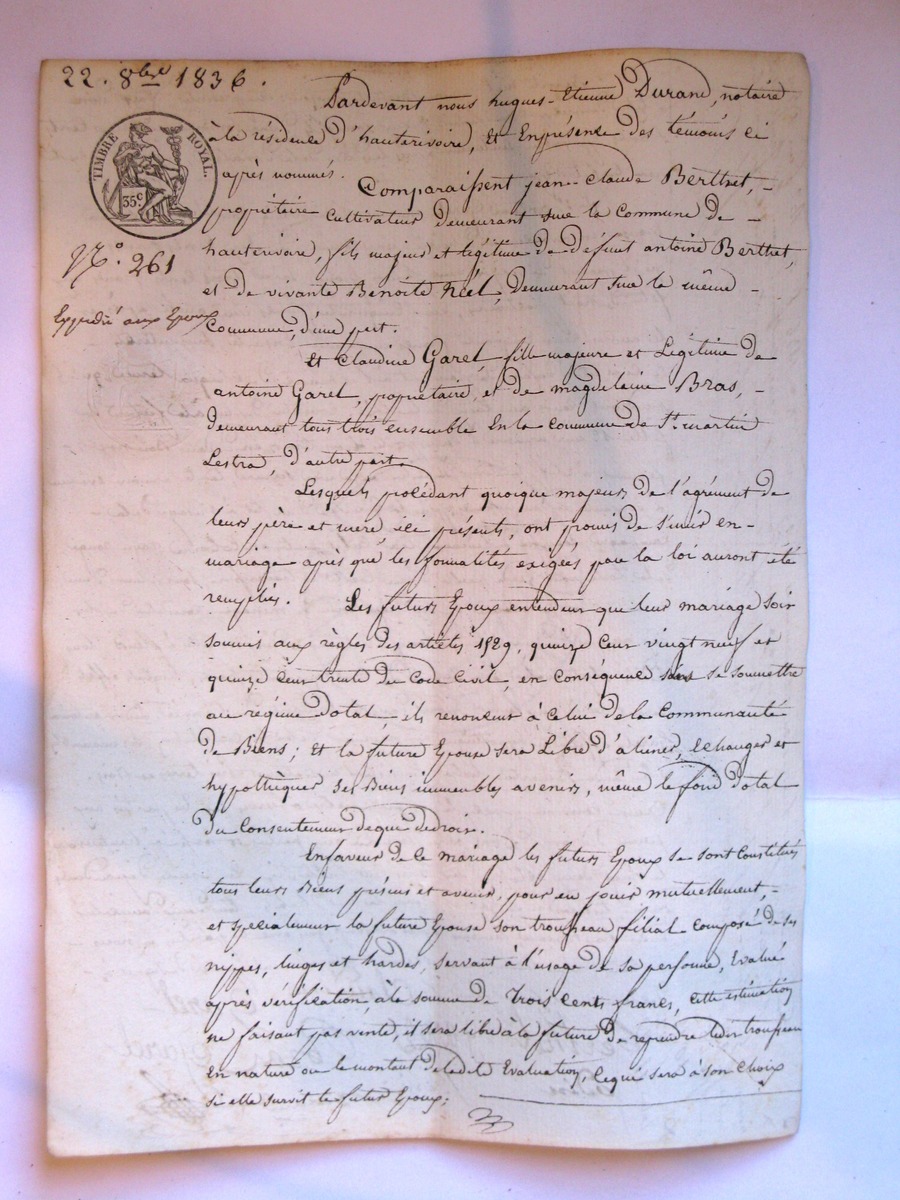 22. 8bre 1836.
Pardevant nous hugues-Etienne Durand, notaire
à la résidence d'hauterivoire, et Enprésence des témoins ci
après nommés.
TIMBRE ROYAL.
35c
Comparaissent jean-claude Berthet, -
propriétaire cultivateur Demeurant sur la commune de -
hauterivoire, fils majeur et légitime de défunt antoine Berthet,
N.° 261
et de vivante Benoite Néel, Demeurant sur la même -
Expedié aux Epoux
Commune, d'une part.
Et Claudine Garel, fille majeure et Légitime de
antoine Garel, propriétaire, et de magdeleine Bras, -
demeurant tous trois ensemble En la commune de St. martin
Lestra, d'autre part.
Lesquels procédant quoique majeurs de l'agrément de
leurs père et mère, ici présents, ont promis de s'unir en-
mariage après que les formalités exigées par la loi auront été
remplies. Les futurs Epoux entendent que leur mariage soit
soumis aux règles des articles 1529, quinze cent vingt neuf et
quinze cent trente du Code Civil, en conséquence sans se soumettre
au régime dotal, ils renoncent à celui de la Communauté
de Biens; Et la future Epouse sera Libre d'aliéner, échanger et
hypothèquer ses Biens immeubles avenirs, même le fond dotal
du Consentement de que dedroit.
Enfaveur de ce mariage les futurs Epoux se sont Constitués
tous leurs Biens présens et avenir, pour en jouir mutuellement, -
et specialement la future Epouse son trousseau filial composé de ses
nippes, linges et hardes, servant à l'usage de sa personne, Evalué
après vérification, à la somme de trois cents francs, Cette estimation
ne faisant pas vente, il sera libre à la future de reprendre ledit trousseau
En nature ou le montant deladite Evaluation, cequi sera à son choix
si elle survit le futur Epoux;